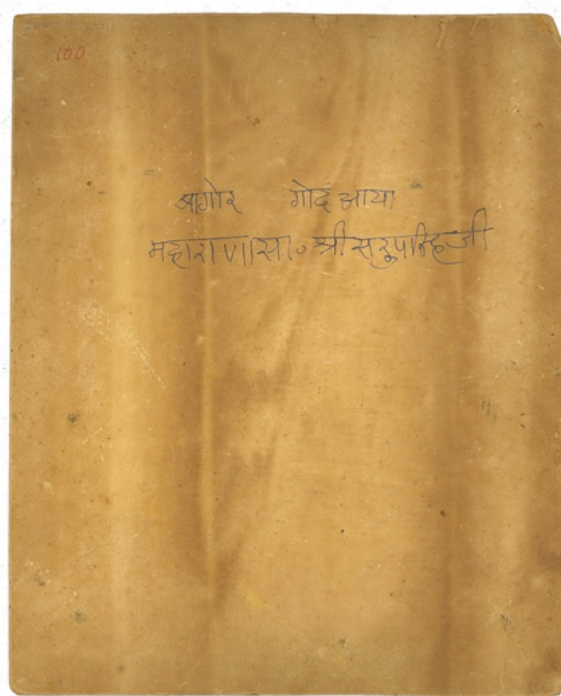 100
बागोर गोद आया
महाराणासा० श्री सरुपसिंहजी